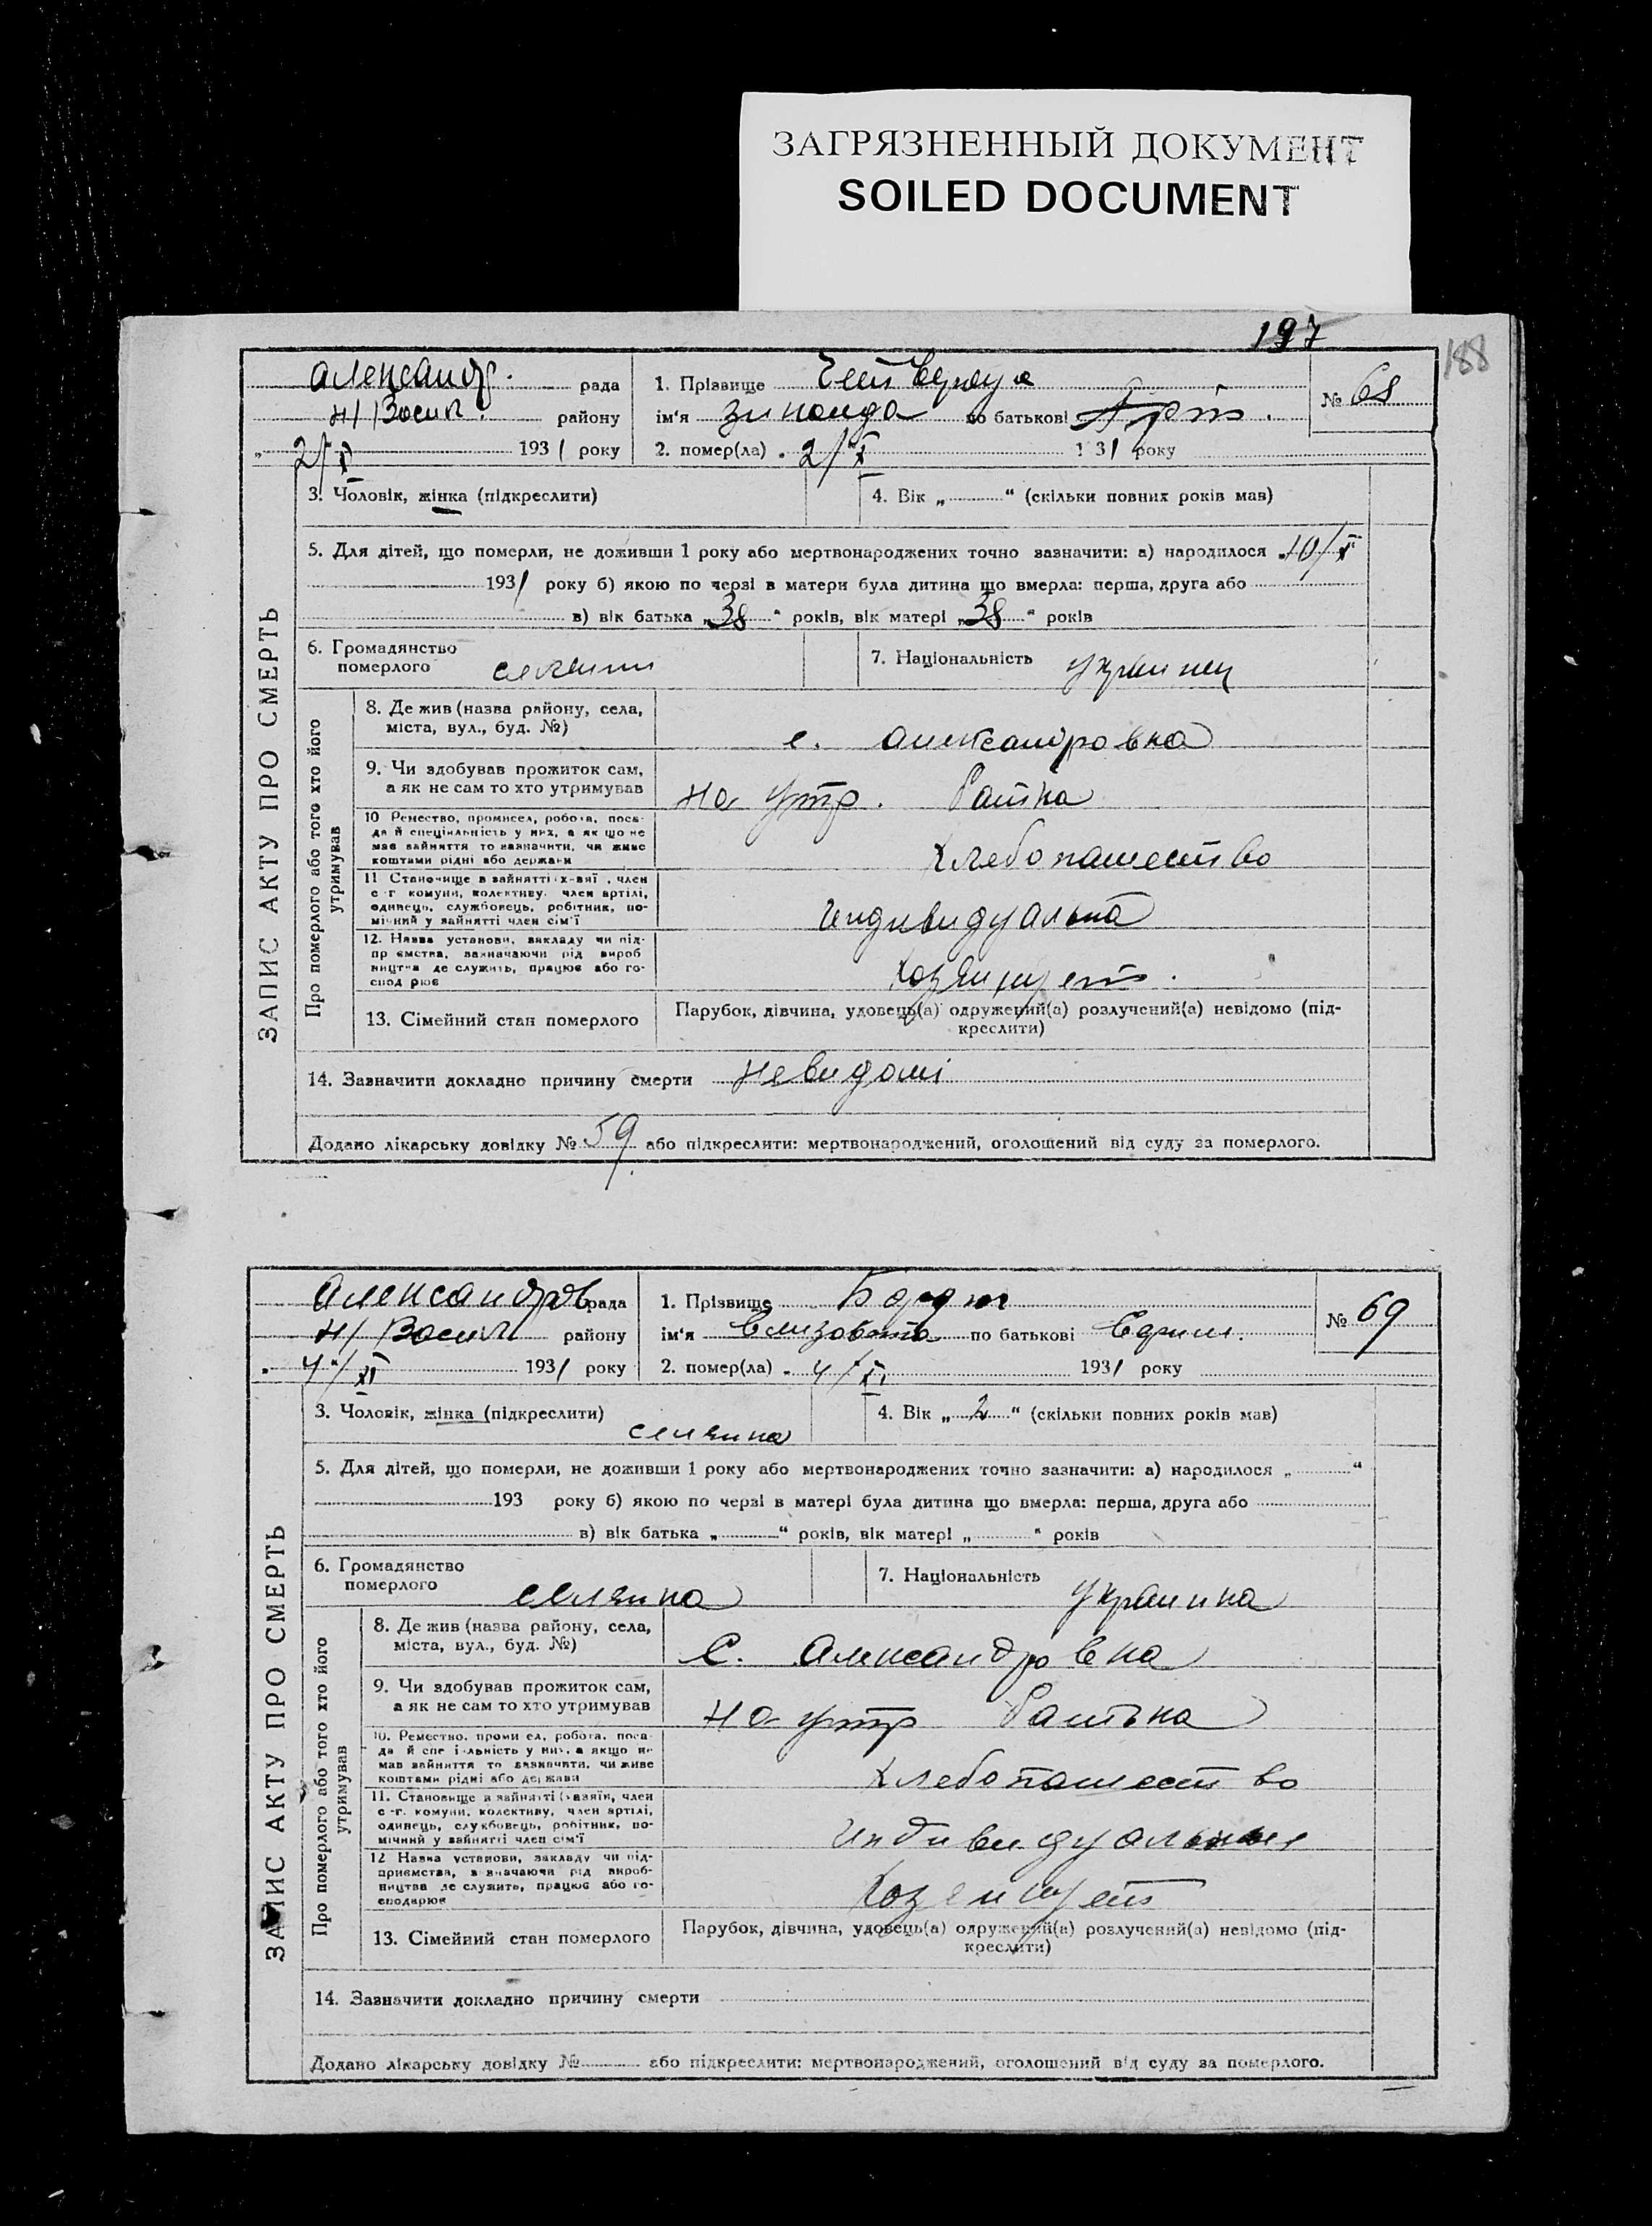 ЗАГРЯЗНЕННЫЙ ДОКУМЕНТ
SOILED DOCUMENT
197
188
Александр. рада
1. Прізвище
№ 68
району
ім'я Зинаида по батькові
2/XI 1931 року
2. помер(ла) 2/XI 131 року
3. Чоловік, жінка (підкреслити)
4. Вік „ “ (скільки повних років мав)
5. Для дітей, що померли, не доживши 1 року або мертвонароджених точно зазначити: а) народилося „10/X“
1931 року б) якою по черзі в матери була дитина що вмерла: перша, друга або
в) вік батька „38“ років, вік матері „38“ років
6. Громадянство
померлого
7. Національність
ЗАПИС АКТУ ПРО СМЕРТЬ
Про померлого або того хто його
утримував
8. Де жив (назва району, села,
міста, вул., буд. №)
с. Александровка
9. Чи здобував прожиток сам,
а як не сам то хто утримував
На утр. батка
10 Ремество, промисел, робота, поса-
да й спеціяльність у них, а як що не
має зайняття то назначити, чи живе
коштами рідні або держави
Хлебопашество
11 Становище в зайнятті х-ваї, член
с-г комуни, колективу, член артілі,
одинець, службовець, робітник, по-
мічний у зайнятті член сім'ї
Индивидуальна
12. Назва установи, закладу чи під-
пр ємства, зазначаючи рід вироб
ництва де служить, працює або го-
спод рює
13. Сімейний стан померлого
Парубок, дівчина, удовець(а) одружений(а) розлучений(а) невідомо (під-
креслити)
14. Зазначити докладно причину смерти Невидомі
Додано лікарську довідку № 59 або підкреслити: мертвонароджений, оголошений від суду за померлого.
Александров рада
1. Прізвище
№ 69
району
ім'я Елизовета по батькові
4/XI 1931 року
2. помер(ла) 4/XI 1931 року
3. Чоловік, жінка (підкреслити)
селянка
4. Вік „2“ (скільки повних років мав)
5. Для дітей, що померли, не доживши 1 року або мертвонароджених точно зазначити: а) народилося „ “
193 року б) якою по черзі в матері була дитина що вмерла: перша, друга або
в) вік батька „ “ років, вік матері „ “ років
6. Громадянство
померлого
селянка
7. Національність
украинка
ЗАПИС АКТУ ПРО СМЕРТЬ
Про померлого або того хто його
утримував
8. Де жив (назва району, села,
міста, вул., буд. №)
С. Александровка
9. Чи здобував прожиток сам,
а як не сам то хто утримував
На утр батька
10. Ремество, проми ел, робота, поса-
да й спе і льність у них, а якщо не
мав зайняття то зазначити, чи живе
коштами рідні або держави
Хлебопашество
11. Становище в зайнятті (хазяїн, член
с-г. комуни, колективу, член артілі,
одинець, службовець, робітник, по-
мічний у зайнятті член сім'ї
12 Назва установи, закладу чи під-
приємства, зазначаючи рід вироб-
ництва де служить, працює або го-
сподарює
13. Сімейний стан померлого
Парубок, дівчина, удовець(а) одружений(а) розлучений(а) невідомо (під-
креслити)
14. Зазначити докладно причину смерти
Додано лікарську довідку № або підкреслити: мертвонароджений, оголошений від суду за померлого.